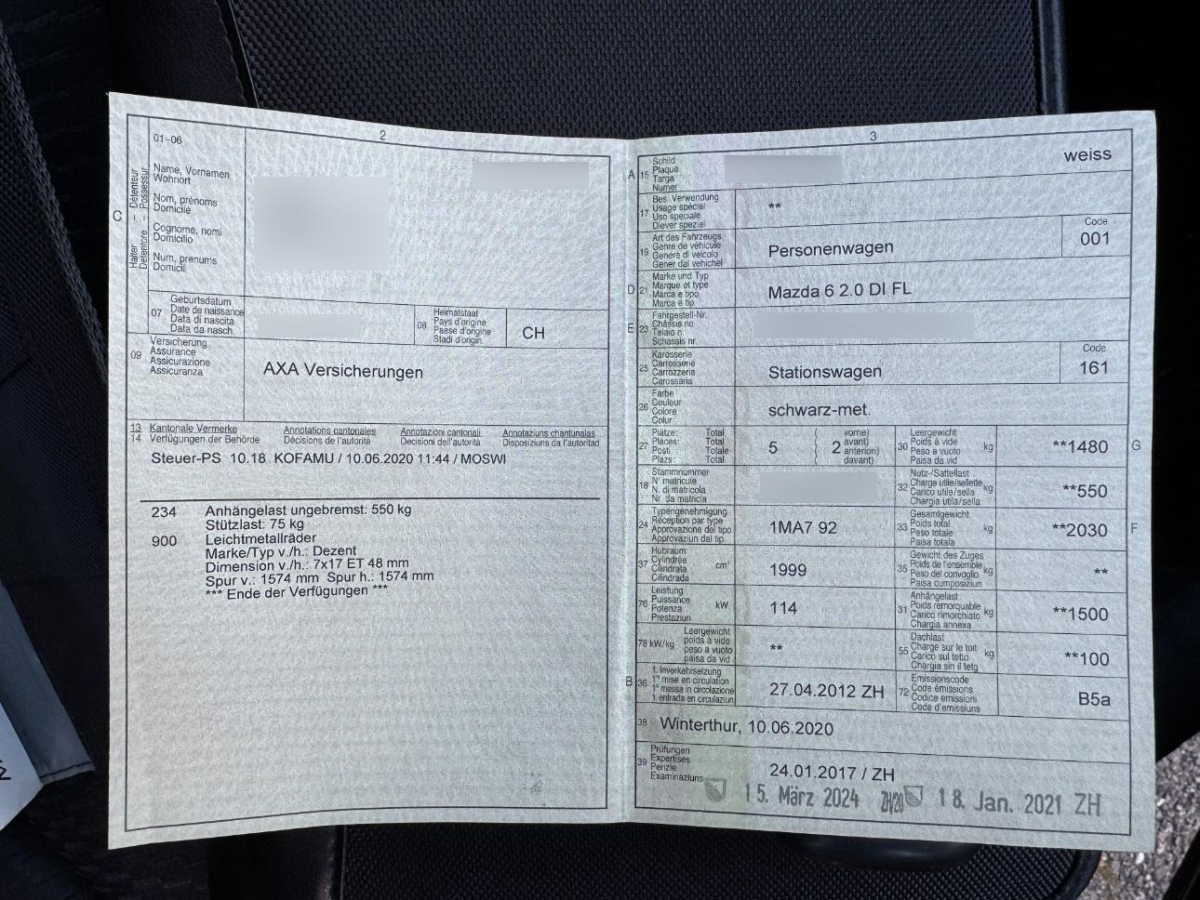 2
01-06
C
Halter – Détenteur
Detentore – Possessur
Name, Vornamen
Wohnort
Nom, prénoms
Domicile
Cognome, nomi
Domicilio
Num, prenums
Domicil
07
Geburtsdatum
Date de naissance
Data di nascita
Data da nasch.
08
Heimatstaat
Pays d'origine
Paese d'origine
Stadi d'origin
CH
09
Versicherung
Assurance
Assicurazione
Assicuranza
AXA Versicherungen
13 Kantonale Vermerke Annotations cantonales Annotazioni cantonali Annotaziuns chantunalas
14 Verfügungen der Behörde Décisions de l'autorité Decisioni dell'autorità Disposiziuns da l'autoritad
Steuer-PS 10.18 KOFAMU / 10.06.2020 11:44 / MOSWI
234 Anhängelast ungebremst: 550 kg
Stützlast: 75 kg
900 Leichtmetallräder
Marke/Typ v./h.: Dezent
Dimension v./h.: 7x17 ET 48 mm
Spur v.: 1574 mm Spur h.: 1574 mm
*** Ende der Verfügungen ***
3
A 15
Schild
Plaque
Targa
Numer
weiss
17
Bes. Verwendung
Usage spécial
Uso speciale
Diever spezial
**
19
Art des Fahrzeugs
Genre de véhicule
Genere di veicolo
Gener dal vehichel
Personenwagen
Code
001
D 21
Marke und Typ
Marque et type
Marca e tipo
Marca e tip
Mazda 6 2.0 DI FL
E 23
Fahrgestell-Nr.
Châssis no
Telaio n.
Schassis nr.
25
Karosserie
Carrosserie
Carrozzeria
Carossaria
Stationswagen
Code
161
26
Farbe
Couleur
Colore
Colur
schwarz-met.
27
Plätze: Total
Places: Total
Posti: Totale
Plazs: Total
5
2
vorne)
avant)
anteriori)
davant)
30
Leergewicht
Poids à vide
Peso a vuoto
Paisa da vid
kg
**1480
G
18
Stammnummer
N° matricule
N. di matricola
Nr. da matricla
32
Nutz-/Sattellast
Charge utile/sellette
Carico utile/sella
Chargia utila/sella
kg
**550
24
Typengenehmigung
Réception par type
Approvazione del tipo
Approvaziun dal tip
1MA7 92
33
Gesamtgewicht
Poids total
Peso totale
Paisa totala
kg
**2030
F
37
Hubraum
Cylindrée
Cilindrata
Cilindrada
cm³
1999
35
Gewicht des Zuges
Poids de l'ensemble
Peso del convoglio
Paisa cumposiziun
kg
**
76
Leistung
Puissance
Potenza
Prestaziun
kW
114
31
Anhängelast
Poids remorquable
Carico rimorchiato
Chargia annexa
kg
**1500
78 kW/kg
Leergewicht
poids à vide
peso a vuoto
paisa da vid
**
55
Dachlast
Charge sur le toit
Carico sul tetto
Chargia sin il tetg
kg
**100
B 36
1. Inverkehrsetzung
1re mise en circulation
1a messa in circolazione
1. entrada en circulaziun
27.04.2012 ZH
72
Emissionscode
Code émissions
Codice emissioni
Code d'emissiuns
B5a
38 Winterthur, 10.06.2020
39
Prüfungen
Expertises
Perizie
Examinaziuns
24.01.2017 / ZH
15. März 2024 ZH/20 18. Jan. 2021 ZH